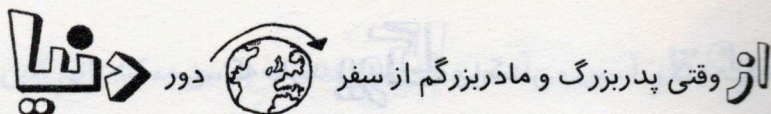 از وقتی پدربزرگ و مادربزرگم از سفر دور دنیا